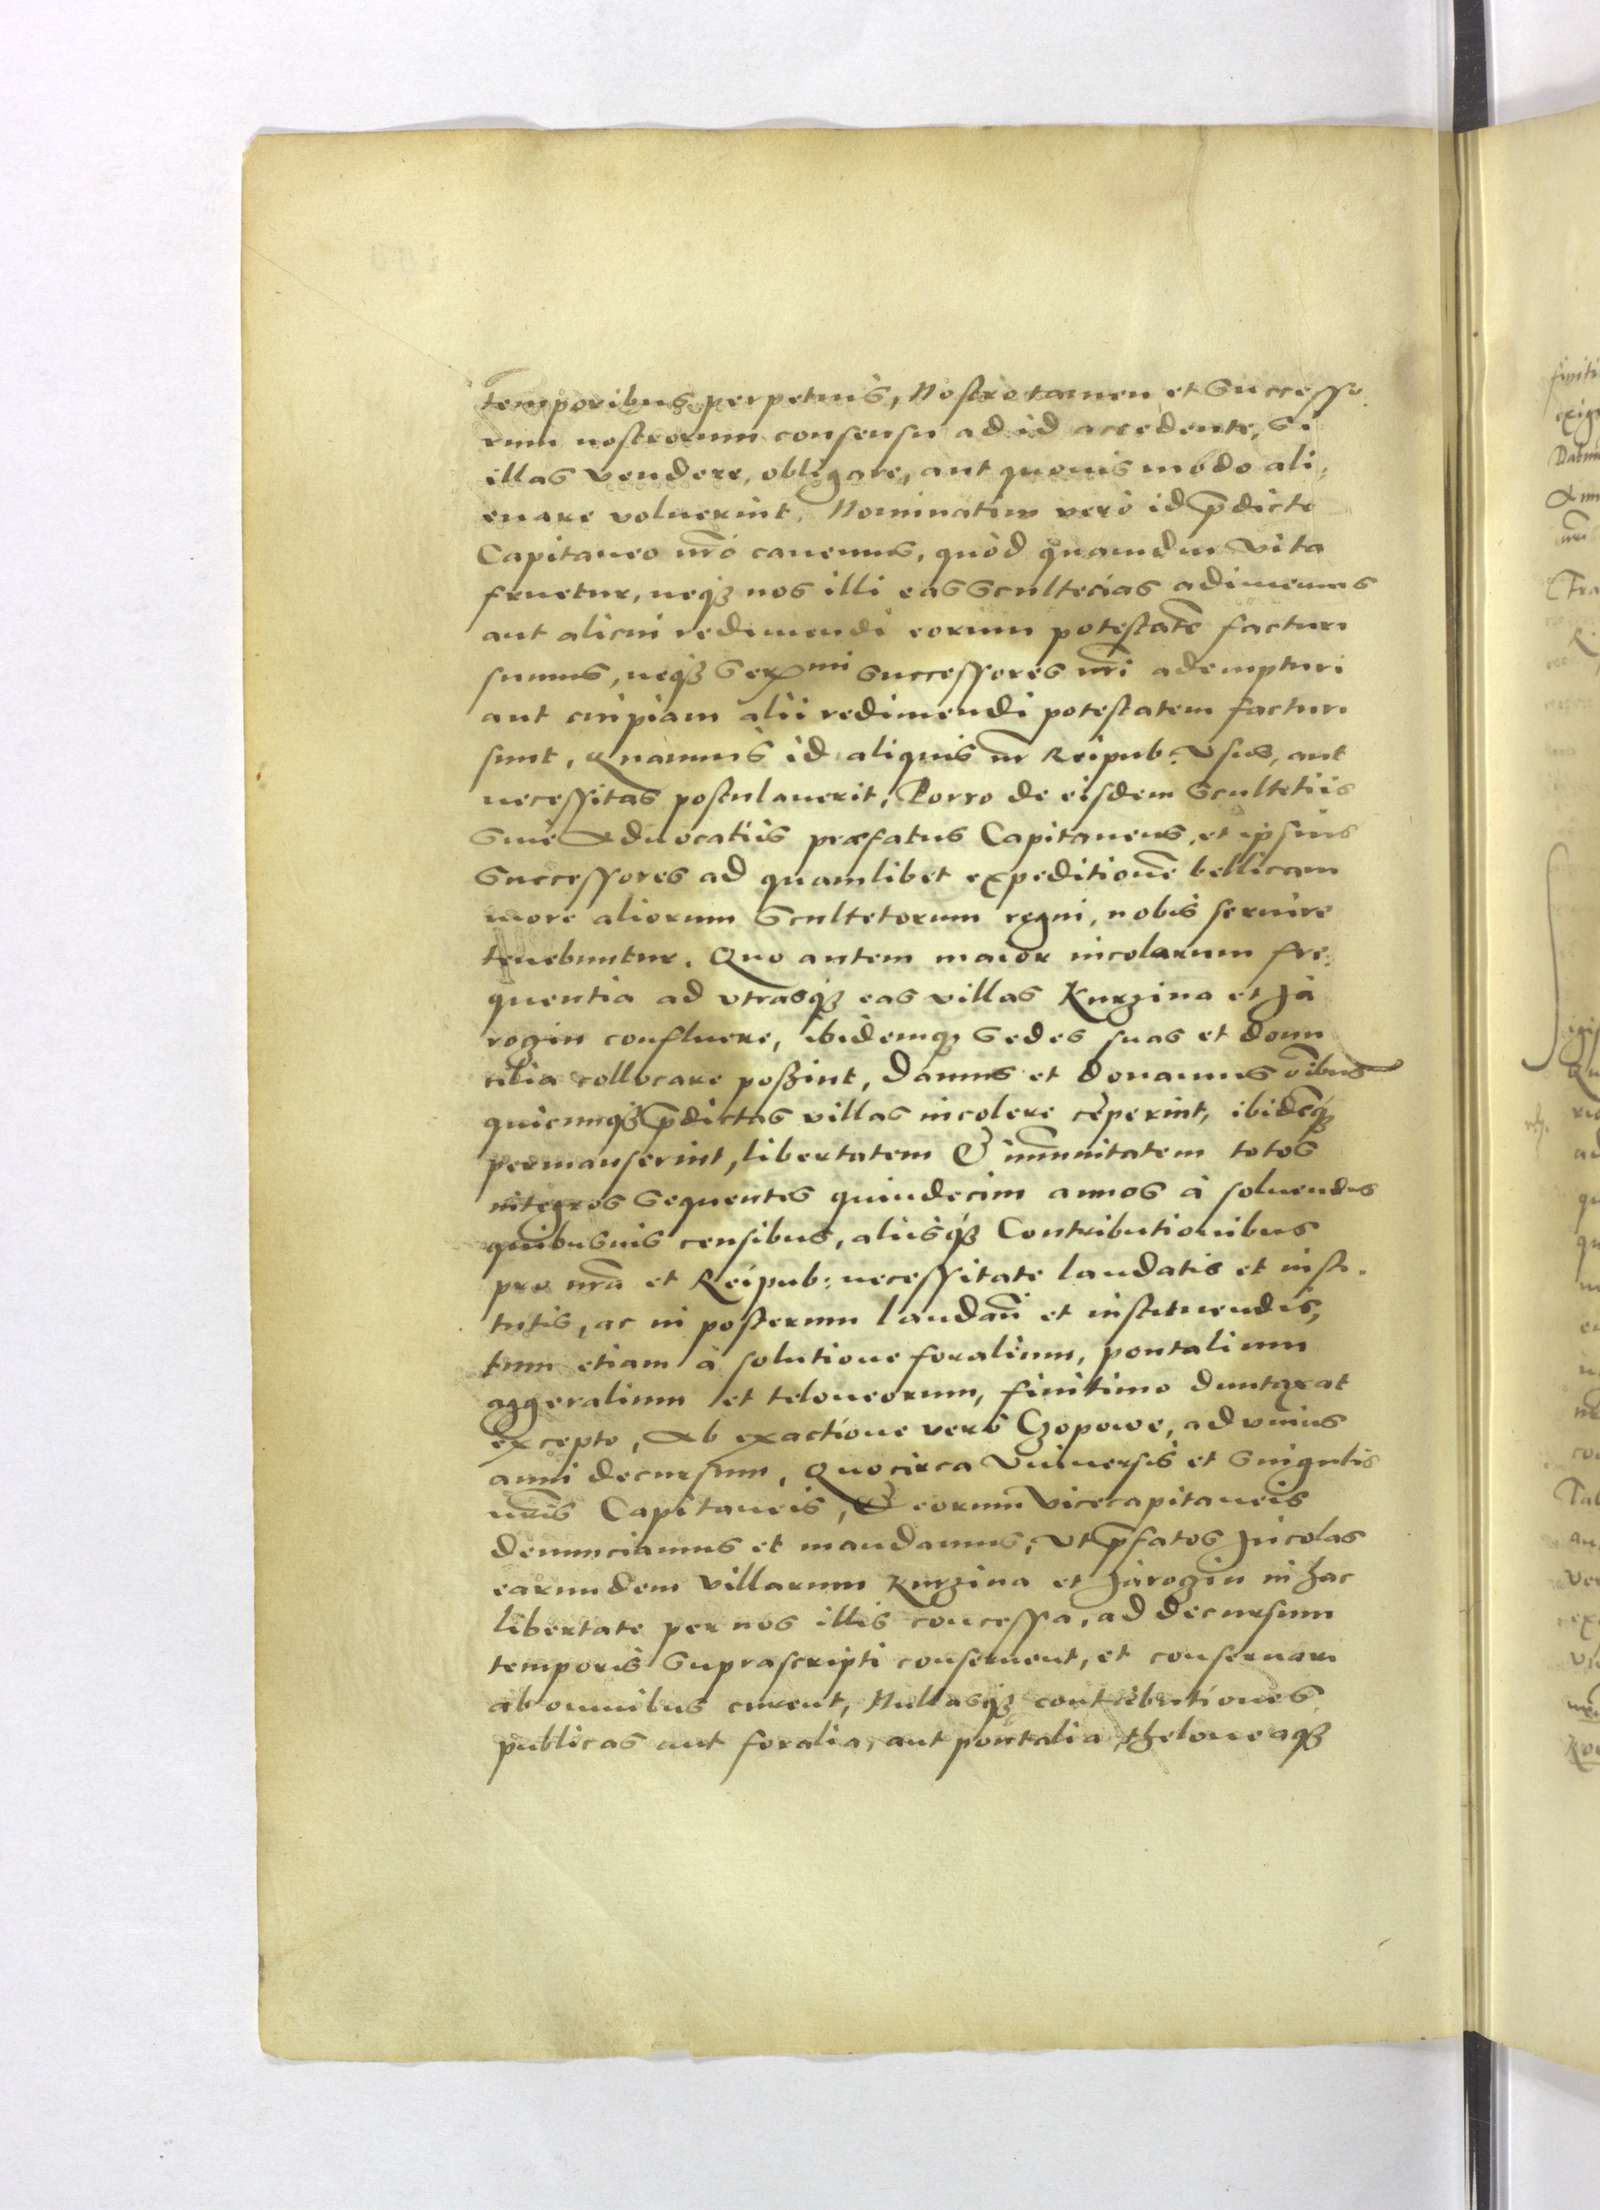 temporibus perpetuis, Nostro tamen et Successo
rum nostrorum consensu ad id accedente, Si
illas vendere, obligare, aut quouis modo ali,
enare voluerint, Nominatim verò id p̄dicto
Capitaneo nr̄o cauemus, quòd quamdiu vita
fruetur, neqꝫ nos illi eas Scultecias adimemus
aut alicui redimendi eorum potestatē facturi
sumus, neqꝫ Ser.mi Successores nr̄i adempturi
aut cuipiam alii redimendi potestatem facturi
sunt, Quamuis id aliquis nr̄ Reipub: vsus, aut
necessitas postulauerit, Porro de eisdem Scultetiis
Siue Aduocatiis præfatus Capitaneus, et ipsius
Successores ad quamlibet expeditionē bellicam
more aliorum Scultetorum regni, nobis seruire
tenebuntur. Quo autem maior incolarum fre,
quentia ad vtrasqꝫ eas villas Kurzina et Ja
rogin confluere, ibidemqꝫ Sedes suas et domi
cilia collocare poßint, Damus et donamus oībus
quicunqꝫ p̄dictas villas incolere cèperint, ibidēqꝫ
permanserint, libertatem & im̄unitatem totos
integros sequentes quindecim annos à soluendis
quibusuis censibus, aliisqꝫ Contributionibus
pro nr̄a et Reipub: necessitate laudatis et insti.
tutis, ac in posterum laudan̄ et instituendis,
tum etiam à solutione foralium, pontalium
aggeralium et teloneorum, finitimo duntaxat
excepto, Ab exactione verò Czopowe, ad vnius
anni decursum, Quocirca Vniuersis et Singulis
nr̄is Capitaneis, & eorum Vicecapitaneis
denunciamus et mandamus, Vt p̄fatos Jncolas
earundem Villarum Kurzina et Jarogin in hac
libertate per nos illis concessa, ad decursum
temporis Suprascripti conseruent, et conseruari
ab omnibus curent, Nullasqꝫ contributiones
publicas aut foralia, aut pontalia, theloneaqꝫ